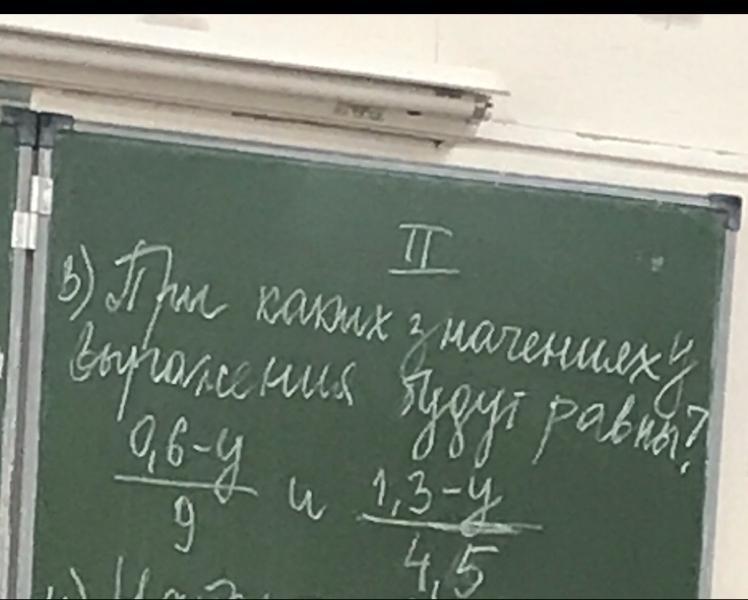 II
в) При каких значениях у
выражения будут равны?
0,6-у и 1,3-у
9 4,5